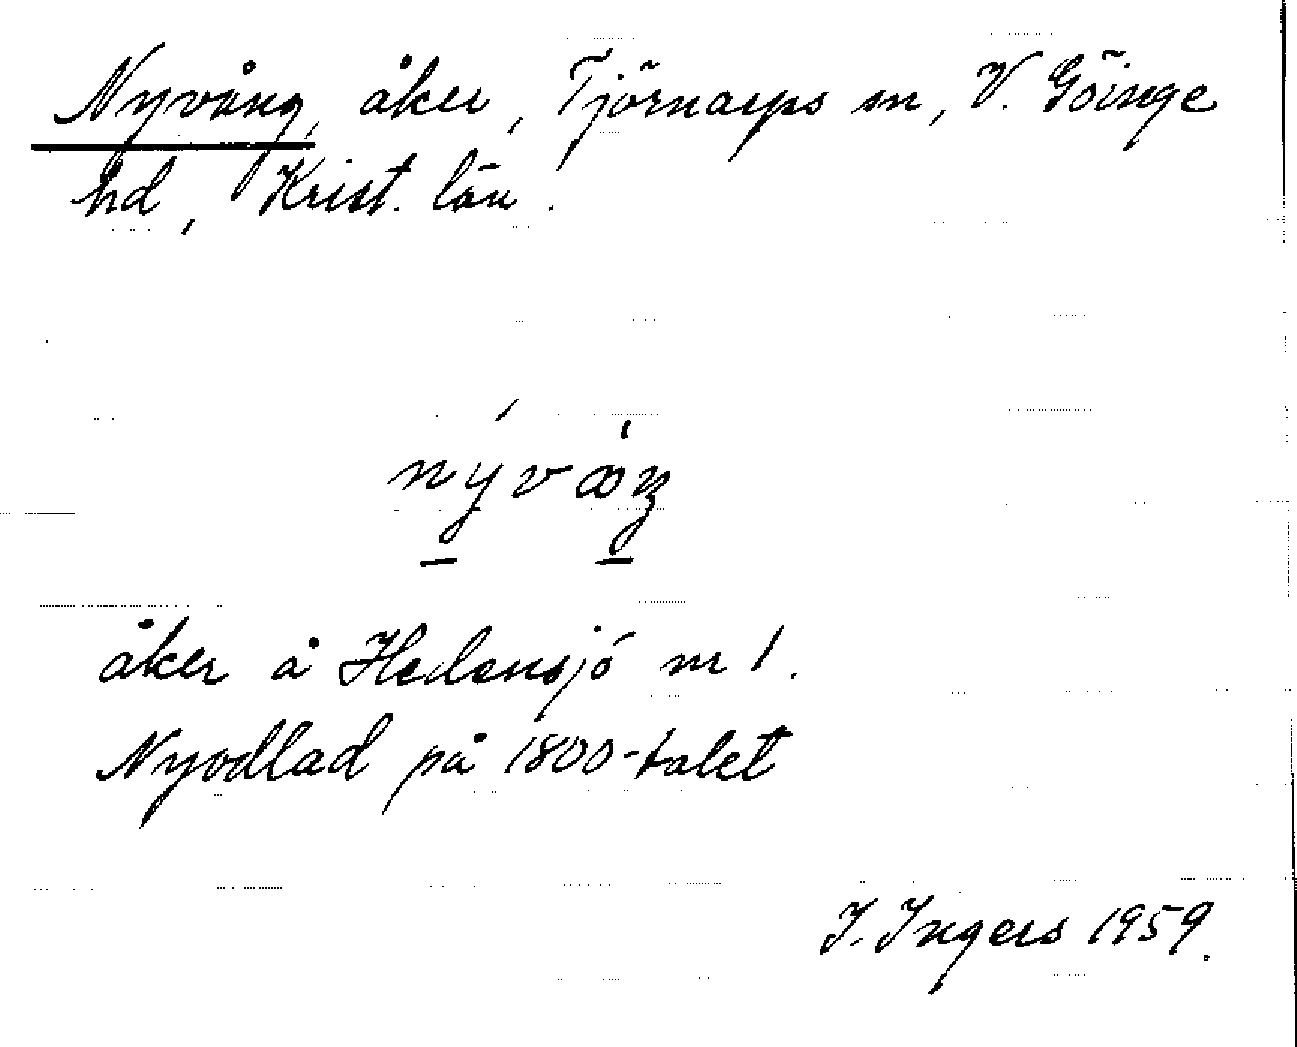 Nyvång, åker, Tjörnarps sn, V. Göinge
hd, Krist. län.
åker å Hedensjö nr 1.
Nyodlad på 1800-talet
I. Ingers 1959.